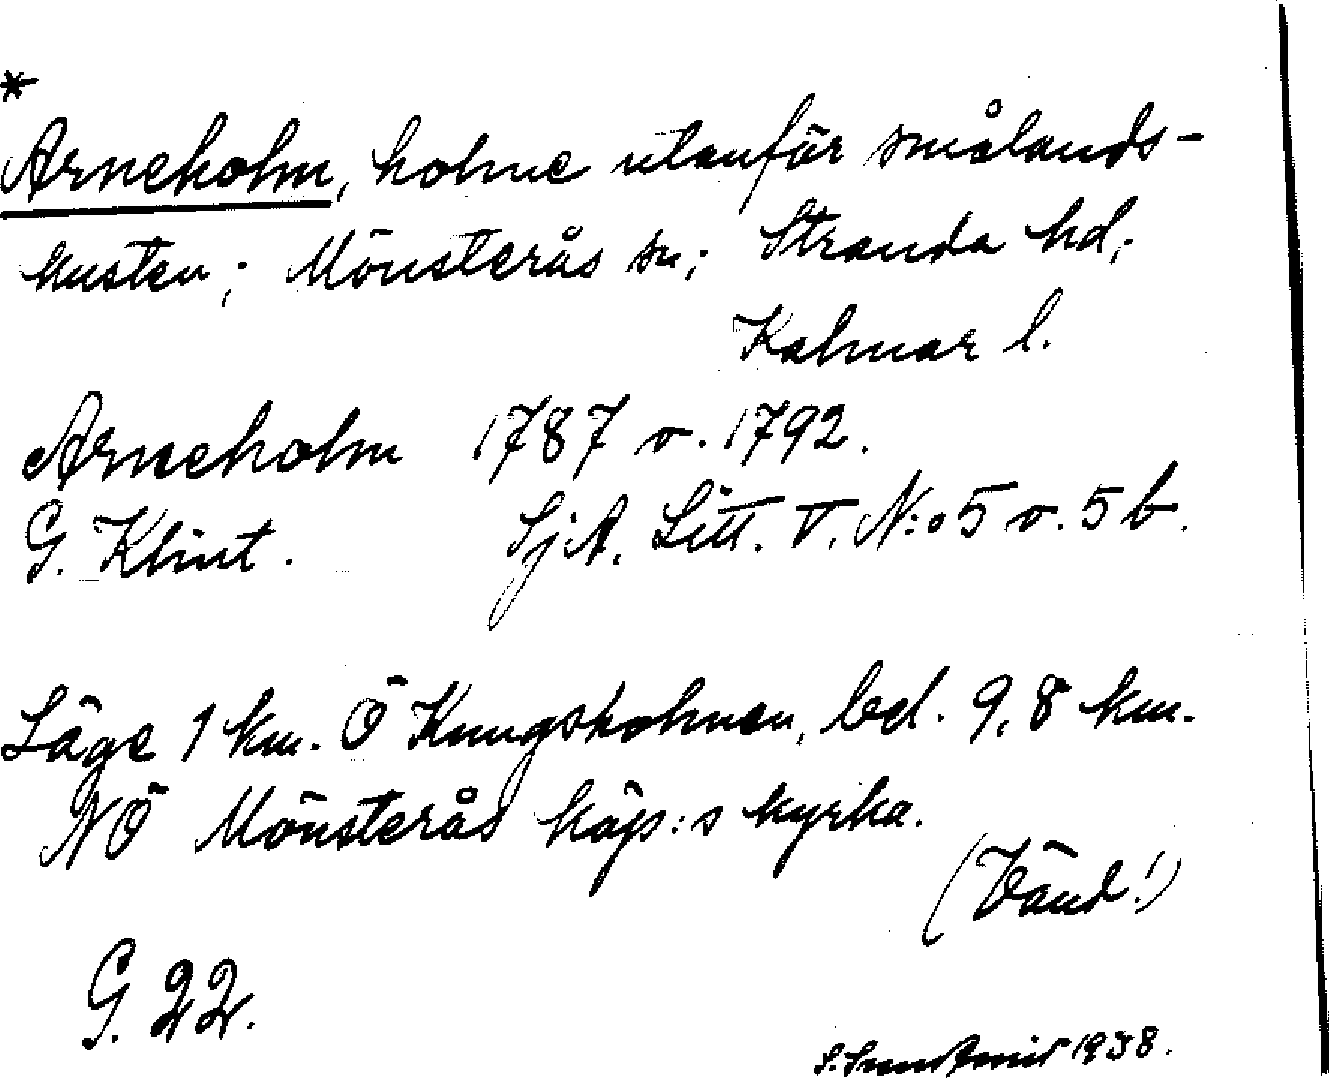 *
Arneholm, holme utanför smålands-
kusten; Mönsterås sn; Stranda hd;
Kalmar l.
Arneholm 1787 o. 1792.
G. Klint. SjA. Litt. V. N:o 5 o. 5 b.
Läge 1 km. Ö Kungsholmen, bel. 9,8 km.
NÖ Mönsterås köp:s kyrka.
(Vänd!)
G. 22.
1938.